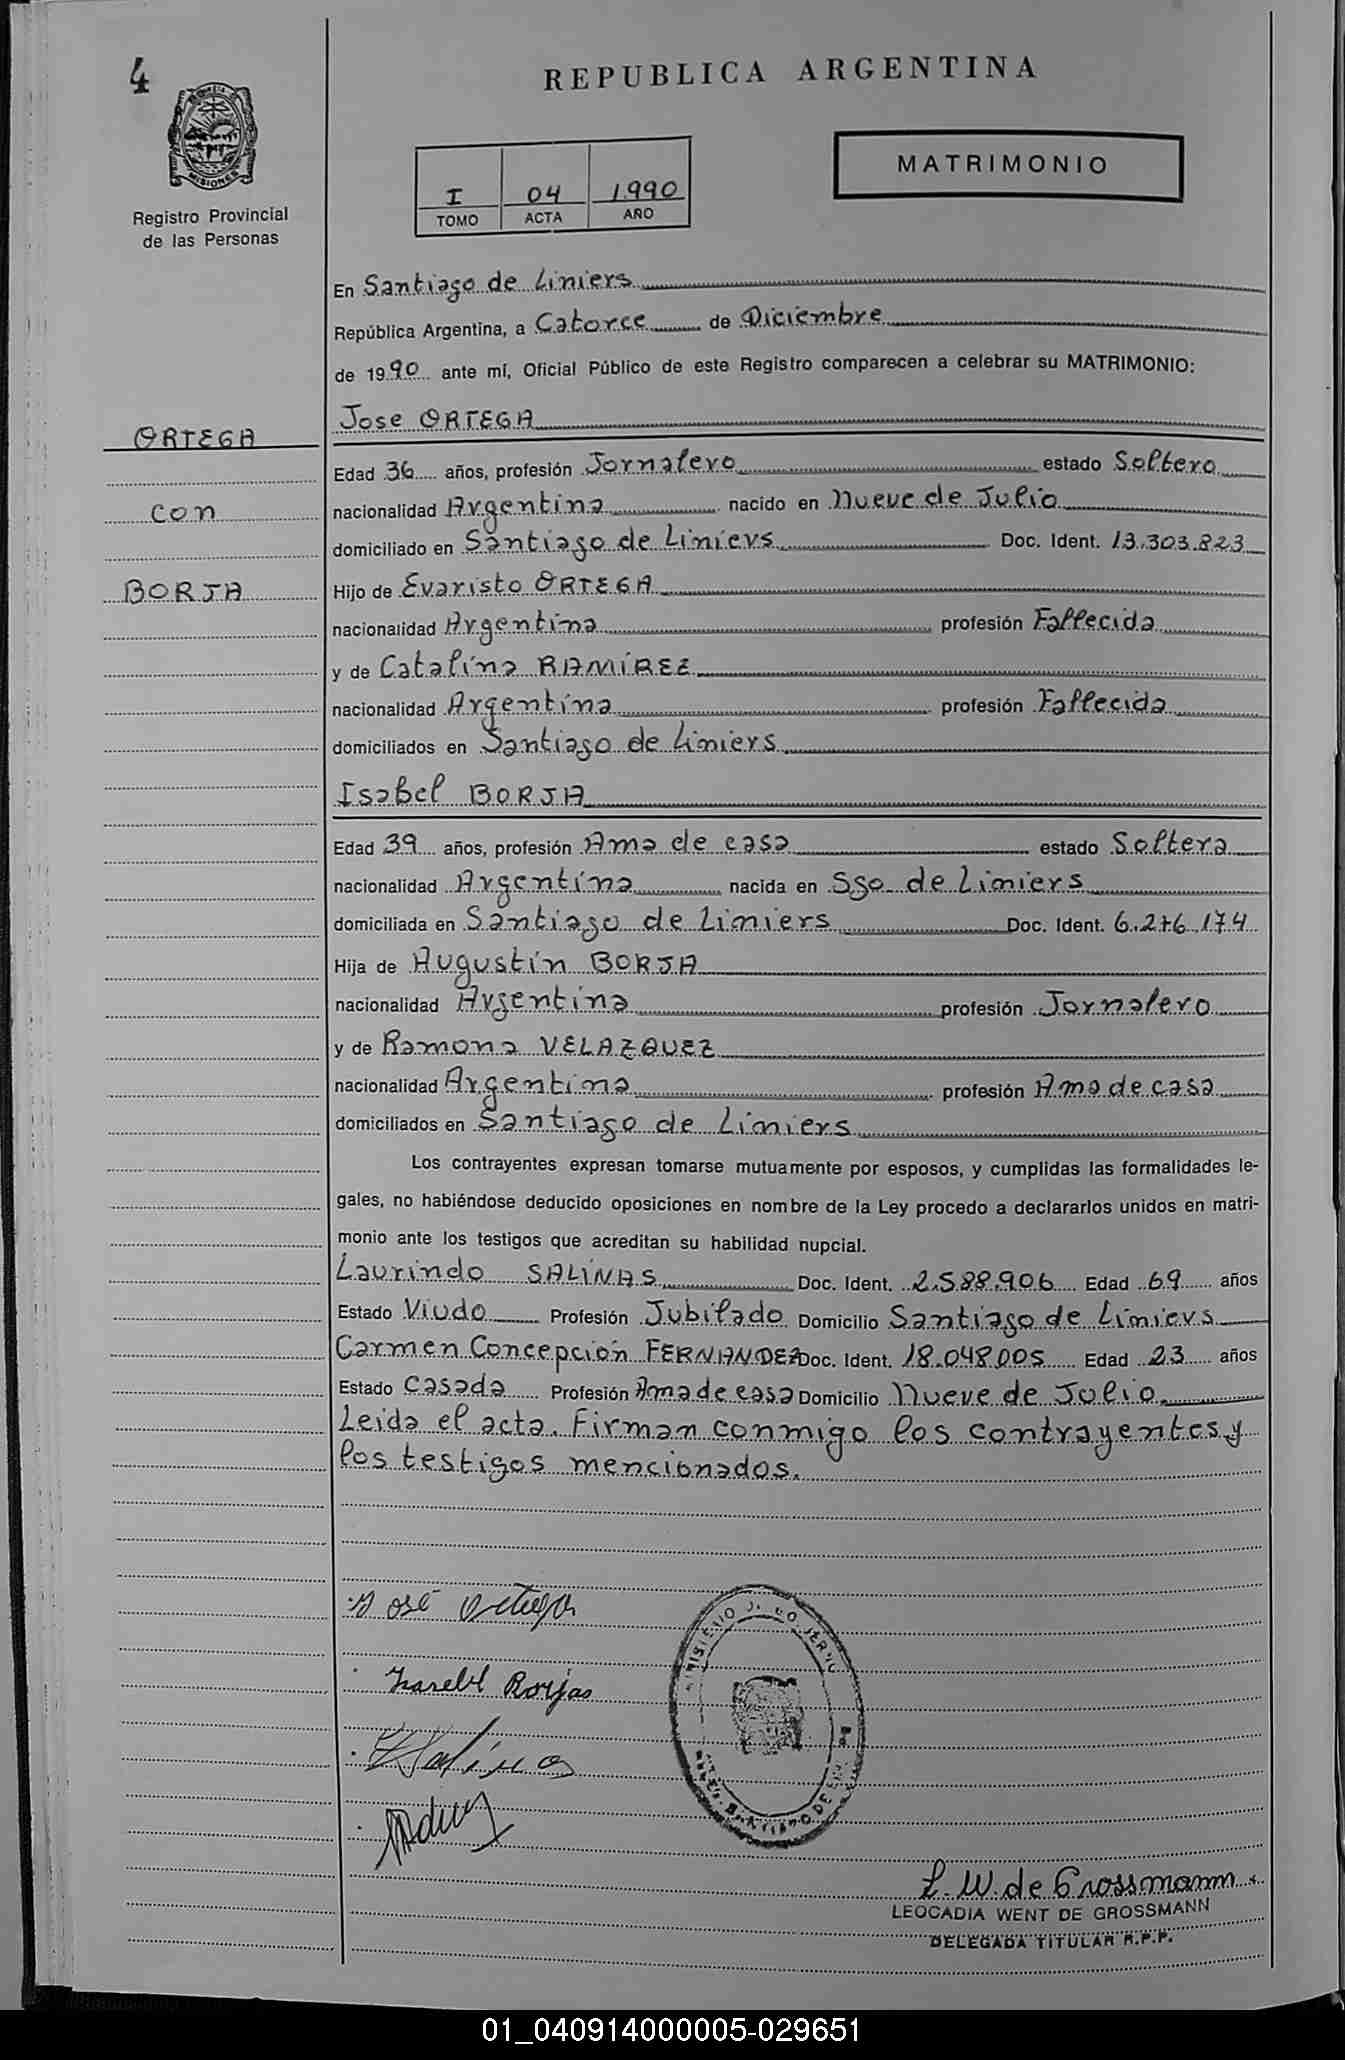 4
REPUBLICA ARGENTINA
MISIONES
Registro Provincial
de las Personas
MATRIMONIO
I 04 1.990
TOMO ACTA AÑO
En Santiago de Liniers
República Argentina, a Catorce de Diciembre
de 1990 ante mí, Oficial Público de este Registro comparecen a celebrar su MATRIMONIO:
ORTEGA
con
BORJA
Jose ORTEGA
Edad 36 años, profesión Jornalero estado Soltero
nacionalidad Argentina nacido en Nueve de Julio
domiciliado en Santiago de Liniers Doc. Ident. 13.303.823
Hijo de Evaristo ORTEGA
nacionalidad Argentina profesión Fallecida
y de Catalina RAMÍREZ
nacionalidad Argentina profesión Fallecida
domiciliados en Santiago de Liniers
Isabel BORJA
Edad 39 años, profesión Ama de casa estado Soltera
nacionalidad Argentina nacida en Sgo. de Liniers
domiciliada en Santiago de Liniers Doc. Ident. 6.276.174
Hija de Augustín BORJA
nacionalidad Argentina profesión Jornalero
y de Ramona VELAZQUEZ
nacionalidad Argentina profesión Ama de casa
domiciliados en Santiago de Liniers
Los contrayentes expresan tomarse mutuamente por esposos, y cumplidas las formalidades le-
gales, no habiéndose deducido oposiciones en nombre de la Ley procedo a declararlos unidos en matri-
monio ante los testigos que acreditan su habilidad nupcial.
Laurindo SALINAS Doc. Ident. 2.588.906 Edad 69 años
Estado Viudo Profesión Jubilado Domicilio Santiago de Liniers
Carmen Concepción FERNANDEZ Doc. Ident. 18.048.005 Edad 23 años
Estado Casada Profesión Ama de casa Domicilio Nueve de Julio
Leida el acta. Firman conmigo los contrayentes y
los testigos mencionados.
José Ortega
Isabel Borjas
Salinas
L. W. de Grossmann
LEOCADIA WENT DE GROSSMANN
DELEGADA TITULAR R.P.P.
01_040914000005-029651